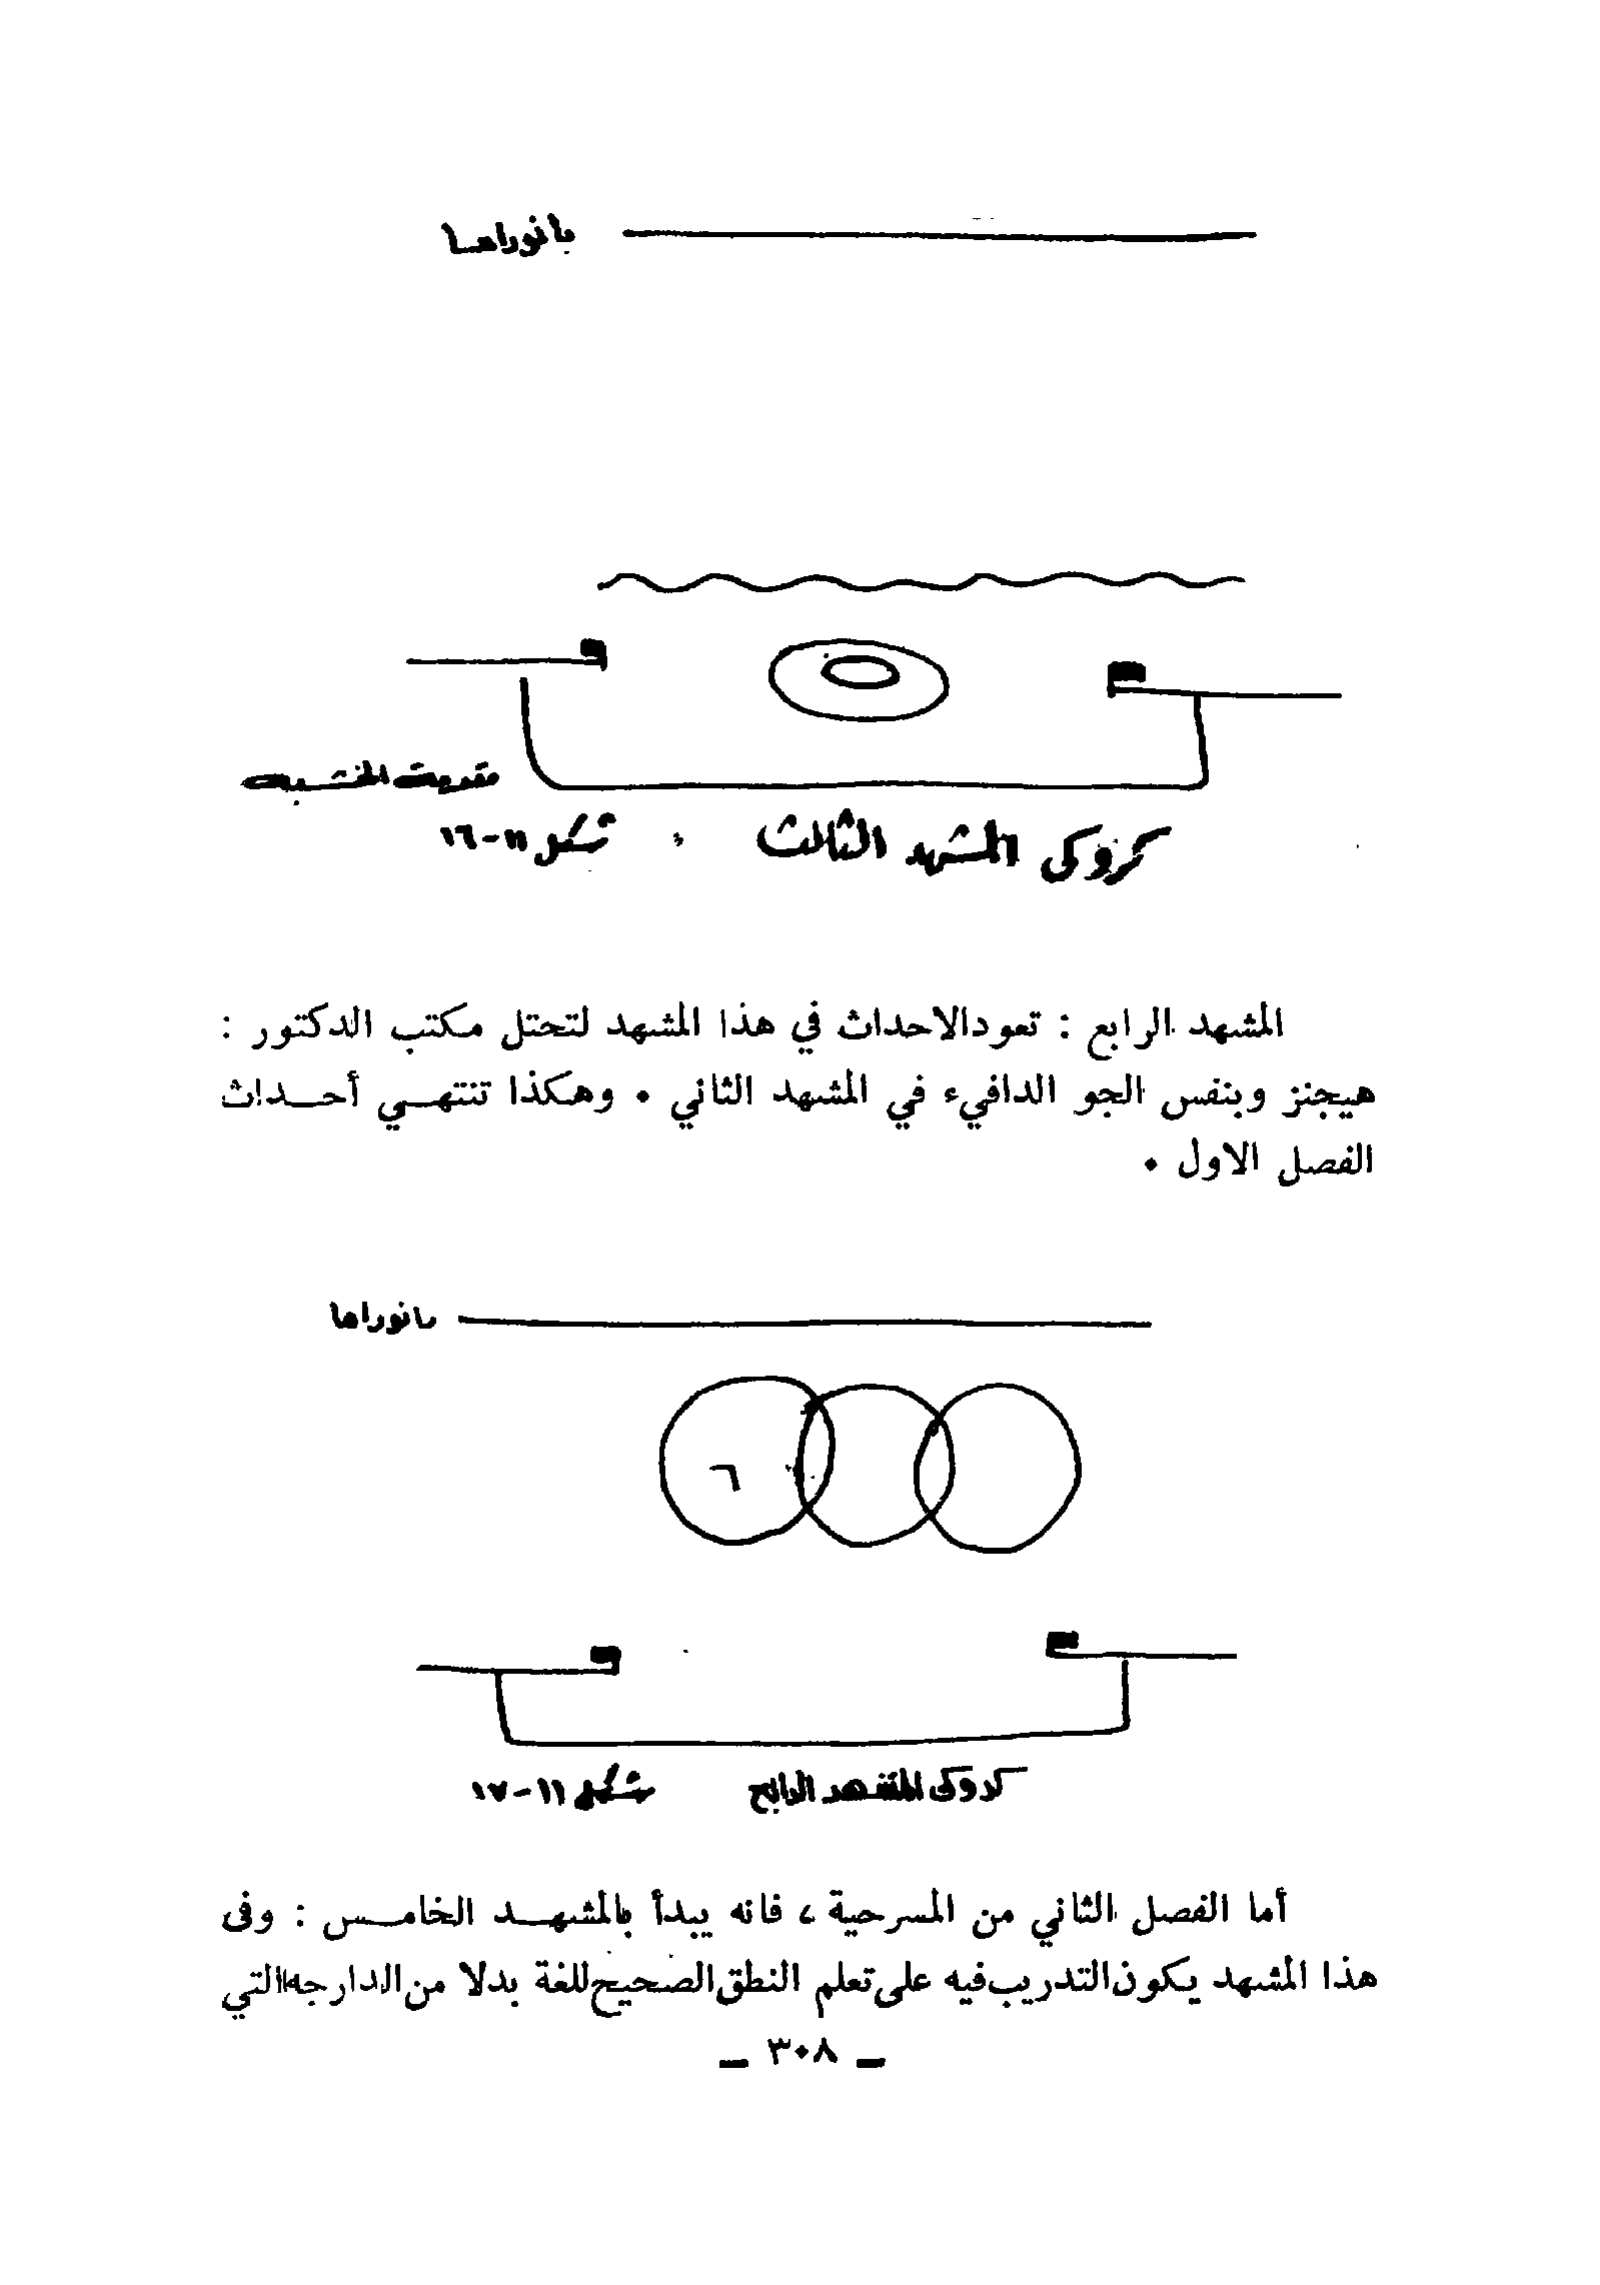 بانوراما
مقدمة الخشبة
كروكى المشهد الثالث شكل ١١-١٦
المشهد الرابع : تعود الاحداث في هذا المشهد لتحتل مكتب الدكتور :
هيجنز وبنفس الجو الدافيء في المشهد الثاني • وهكذا تنتهـي أحـداث
الفصل الاول •
بانوراما
٦
كروكى المشهد الرابع شكل ١١-١٧
أما الفصل الثاني من المسرحية ، فانه يبدأ بالمشهـد الخامـس : وفى
هذا المشهد يكون التدريب فيه على تعلم النطق الصحيح للغة بدلا من الدارجه التي
ـ ٣٠٨ ـ